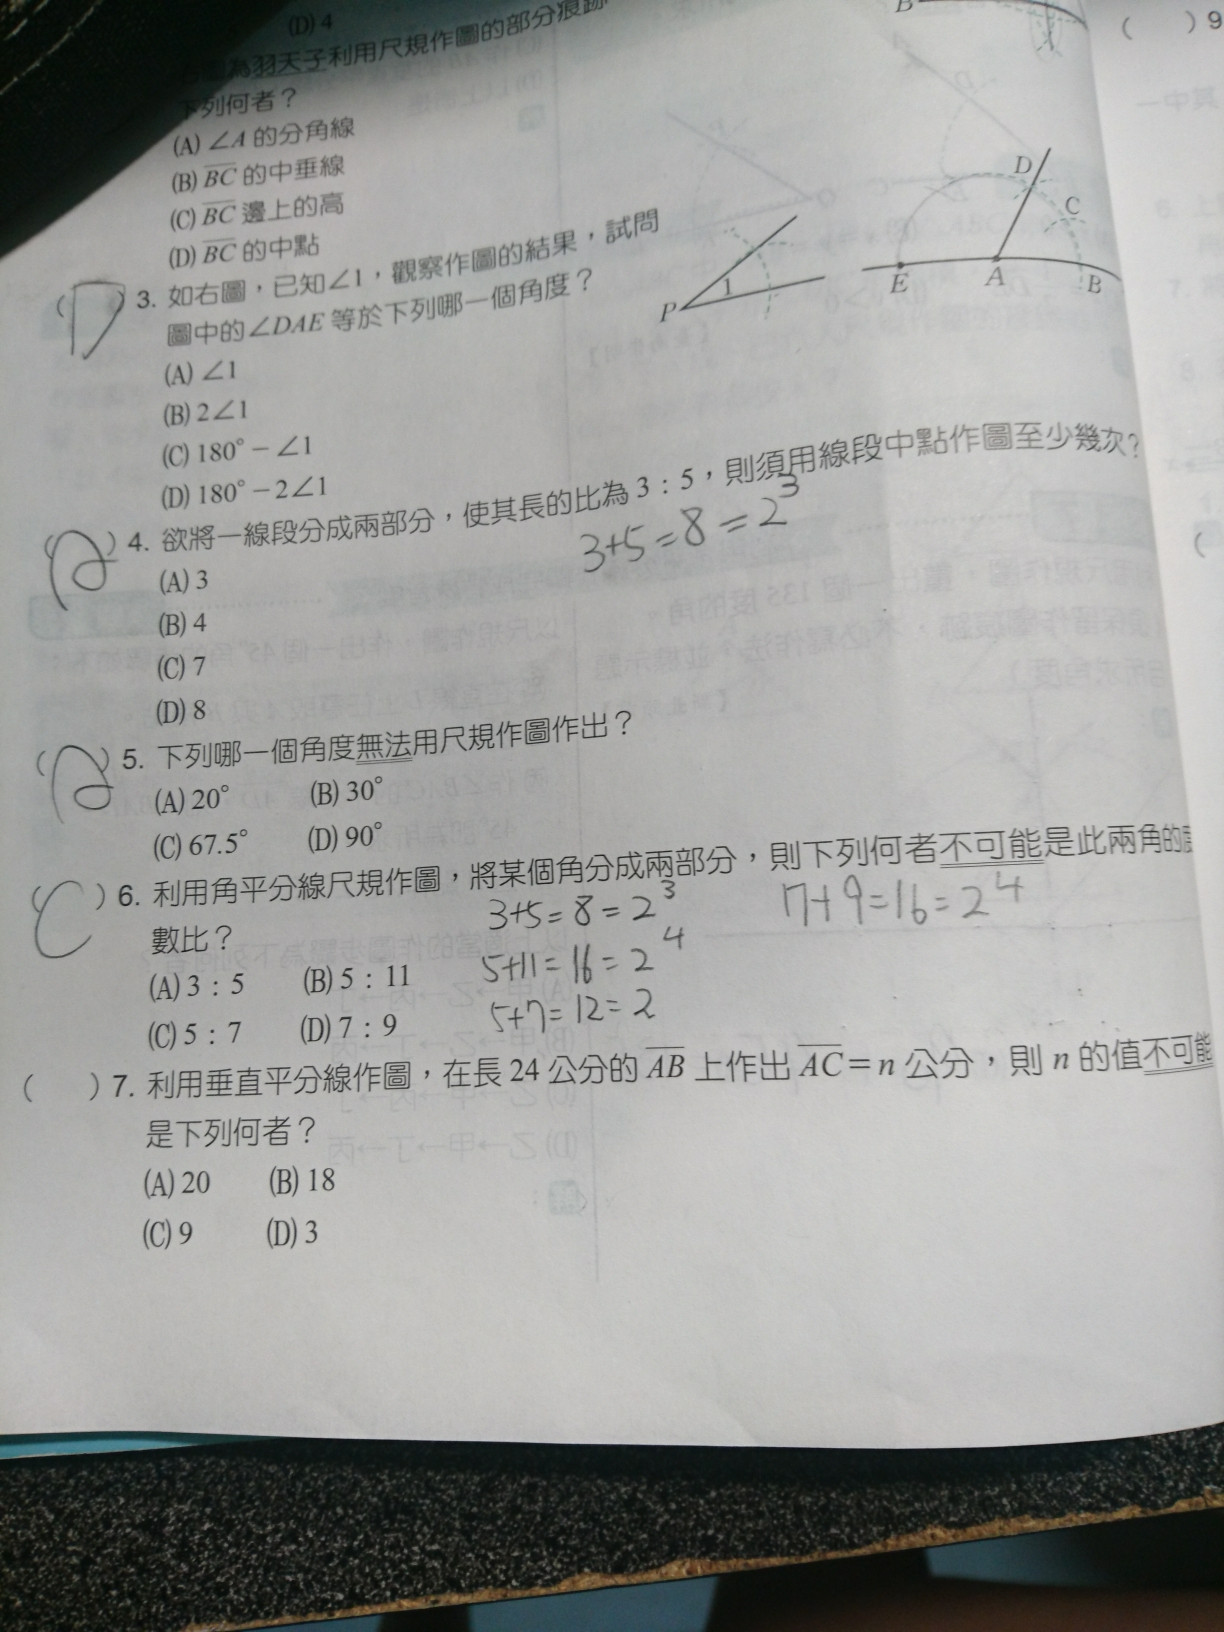 (D) 4
為羽天子利用尺規作圖的部分痕跡
下列何者？
(A) ∠A 的分角線
(B) BC 的中垂線
(C) BC 邊上的高
(D) BC 的中點
(D) 3. 如右圖，已知∠1，觀察作圖的結果，試問
圖中的∠DAE 等於下列哪一個角度？
(A) ∠1
(B) 2∠1
(C) 180° − ∠1
(D) 180° − 2∠1
P 1
E A B C D
B
( ) 9
(A) 4. 欲將一線段分成兩部分，使其長的比為 3：5，則須用線段中點作圖至少幾次？
3+5=8=2³
(A) 3
(B) 4
(C) 7
(D) 8
(A) 5. 下列哪一個角度無法用尺規作圖作出？
(A) 20° (B) 30°
(C) 67.5° (D) 90°
(C) 6. 利用角平分線尺規作圖，將某個角分成兩部分，則下列何者不可能是此兩角的度
數比？
3+5=8=2³
7+9=16=2⁴
(A) 3：5 (B) 5：11
5+11=16=2⁴
(C) 5：7 (D) 7：9
5+7=12=2
( ) 7. 利用垂直平分線作圖，在長 24 公分的 AB 上作出 AC = n 公分，則 n 的值不可能
是下列何者？
(A) 20 (B) 18
(C) 9 (D) 3